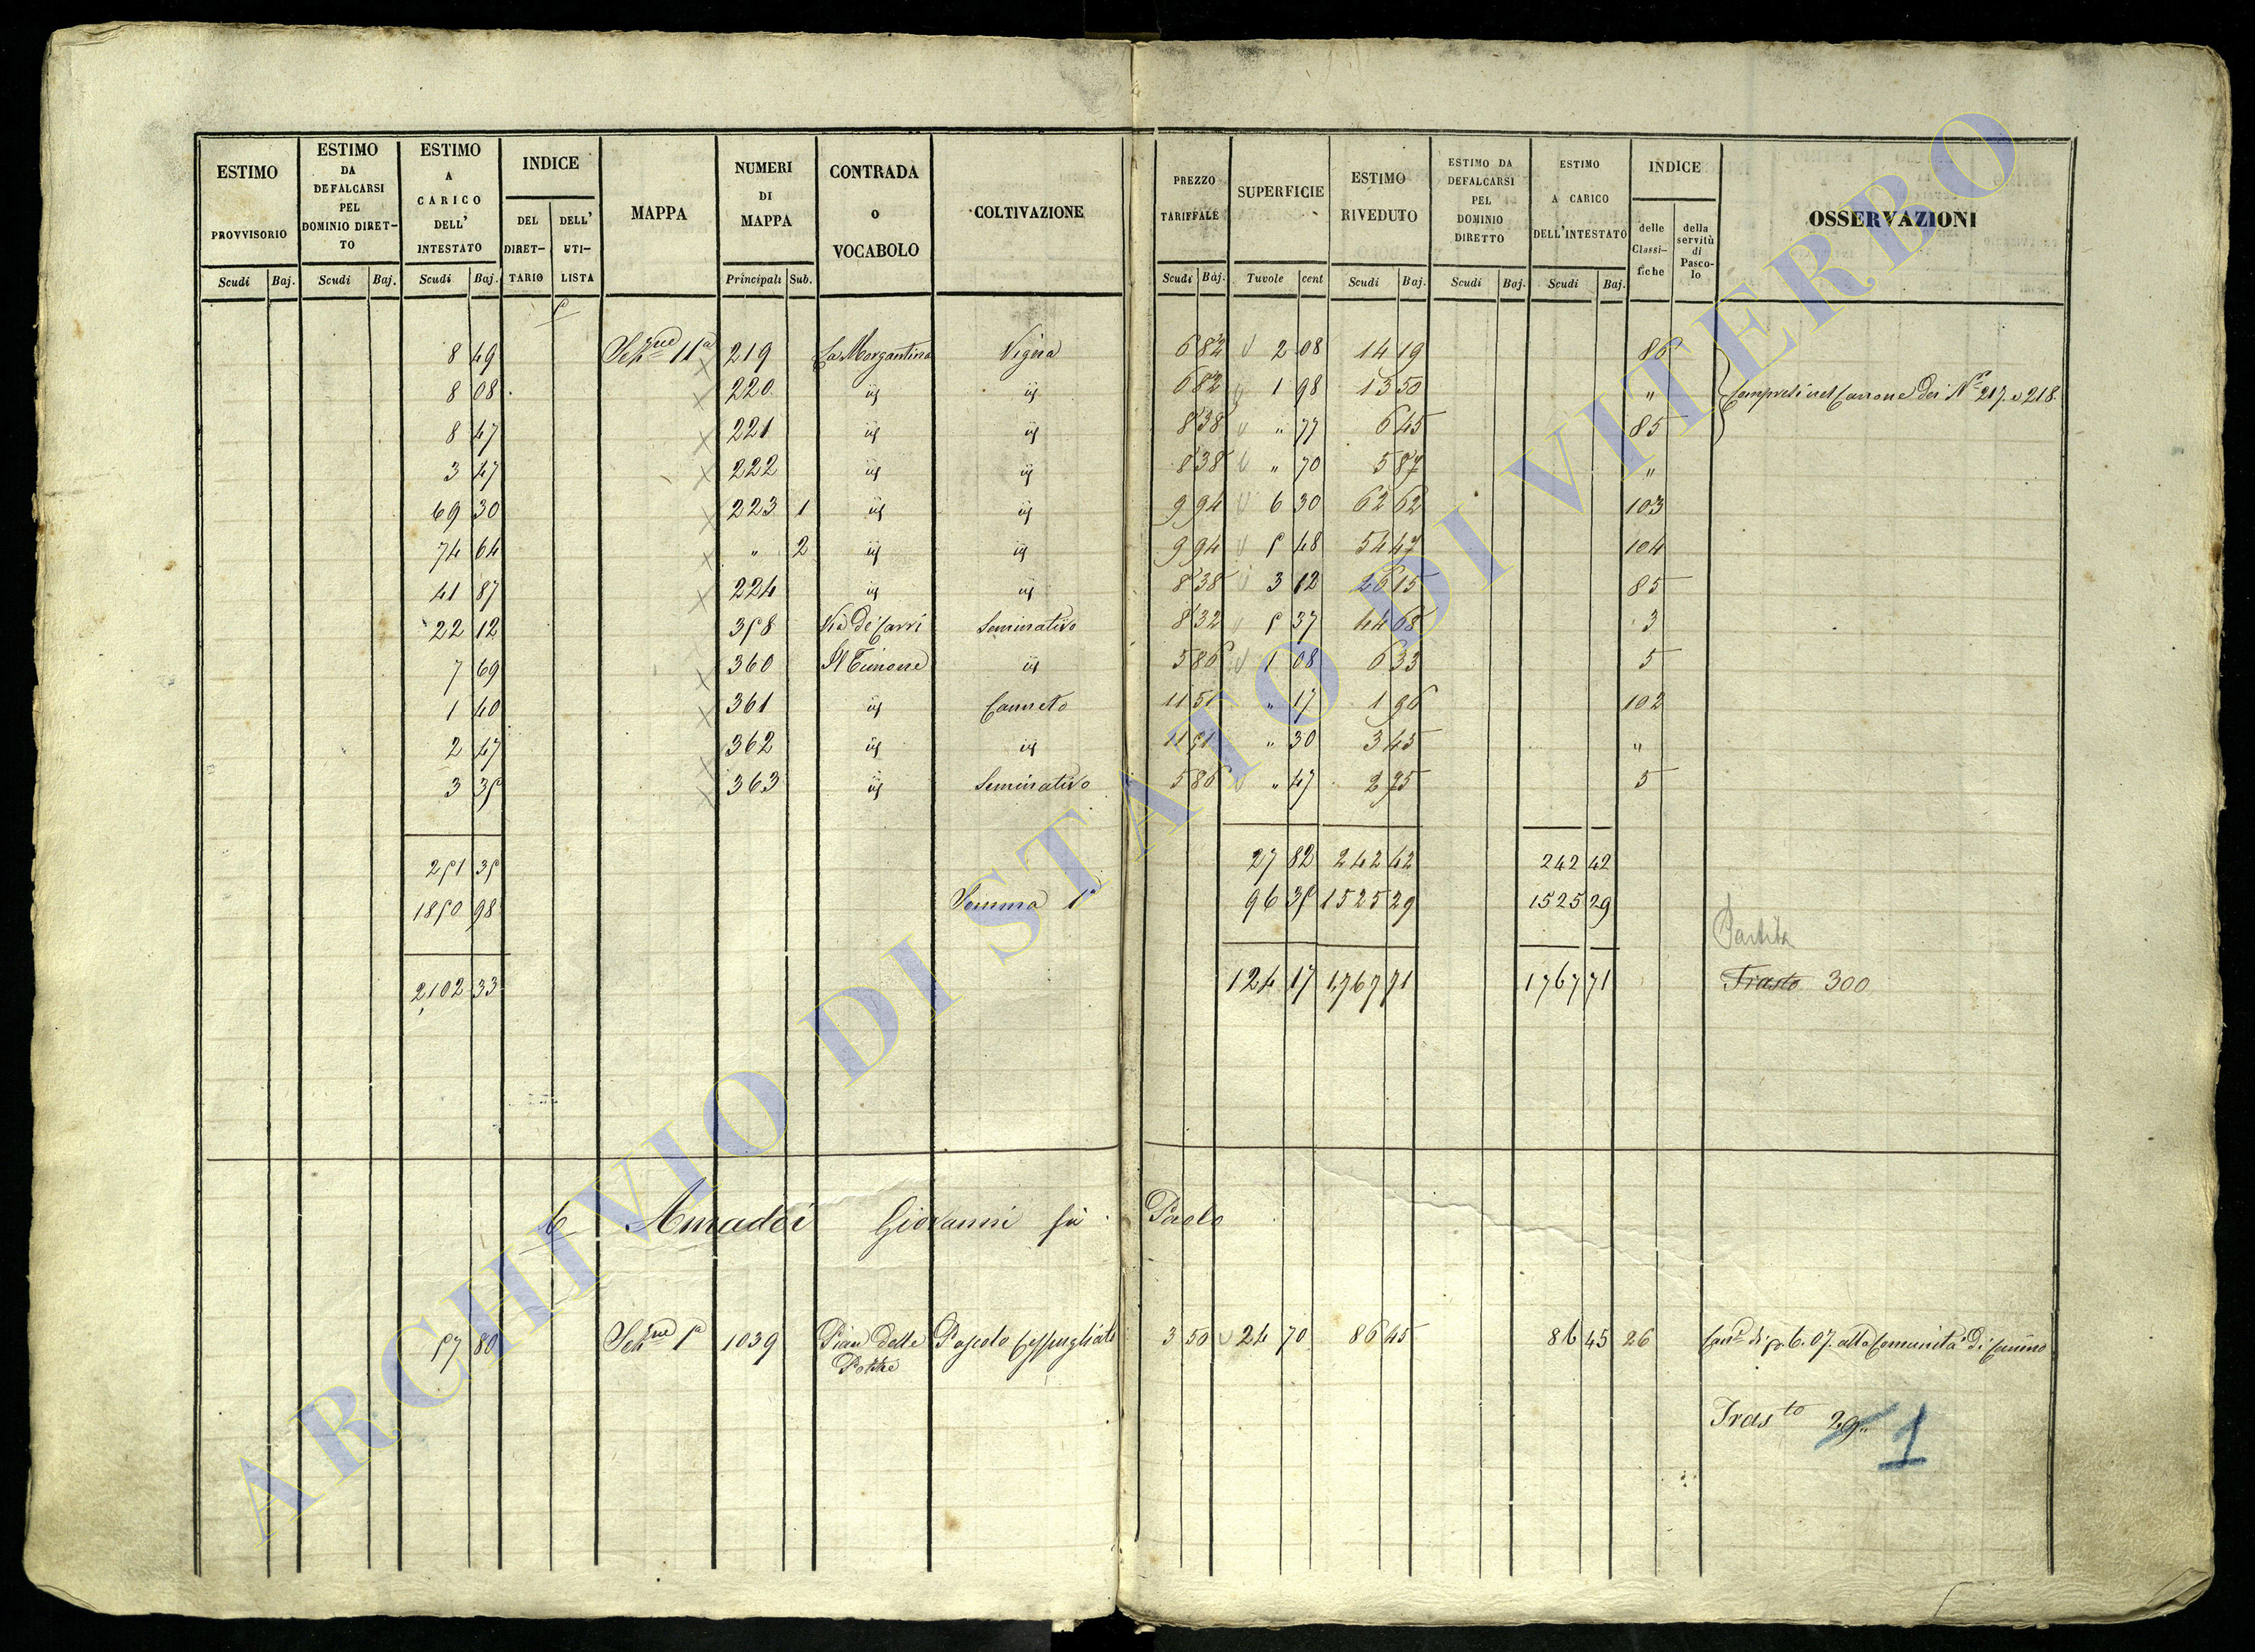 ESTIMO PROVVISORIO | ESTIMO DA DEFALCARSI PEL DOMINIO DIRET-TO | ESTIMO A CARICO DELL' INTESTATO | INDICE DEL DIRET-TARIO | DELL' UTI-LISTA | MAPPA | NUMERI DI MAPPA | CONTRADA o VOCABOLO | COLTIVAZIONE | PREZZO TARIFFALE | SUPERFICIE | ESTIMO RIVEDUTO | ESTIMO DA DEFALCARSI PEL DOMINIO DIRETTO | ESTIMO A CARICO DELL'INTESTATO | INDICE delle Classi-fiche | della servitù di Pasco-lo | OSSERVAZIONI
Scudi | Baj. | Scudi | Baj. | Scudi | Baj. | Principali | Sub. | Scudi | Baj. | Tavole | cent | Scudi | Baj. | Scudi | Baj. | Scudi | Baj.
5
8 49 | Sezne 11a | 219 | La Morgantina | Vigna | 6 82 | 2 08 | 14 19 | 86
8 08 | 220 | iij | iij | 6 82 | 1 98 | 13 50 | " | Compresi nel Canone dei N. 217. e 218.
8 47 | 221 | iij | iij | 8 38 | " 77 | 6 45 | 85
3 47 | 222 | iij | iij | 8 38 | " 70 | 5 87 | "
69 30 | 223 1 | iij | iij | 9 94 | 6 30 | 62 62 | 103
74 64 | " 2 | iij | iij | 9 94 | 5 48 | 54 47 | 104
41 87 | 224 | iij | iij | 8 38 | 3 12 | 26 15 | 85
22 12 | 358 | Via de' Carri | Seminativo | 8 32 | 5 37 | 44 68 | 3
7 69 | 360 | Il Timone | iij | 5 86 | 1 08 | 6 33 | 5
1 40 | 361 | iij | Canneto | 11 51 | " 17 | 1 96 | 102
2 47 | 362 | iij | iij | 11 51 | " 30 | 3 45 | "
3 35 | 363 | iij | Seminativo | 5 86 | " 47 | 2 75 | 5
251 35 | 27 82 | 242 42 | 242 42
1850 98 | Somma 1a | 96 35 | 1525 29 | 1525 29
Partita
2102 33 | 124 17 | 1767 71 | 1767 71 | Trasto 300
6 Amadei Giovanni fu Paolo
57 80 | Sezne 1a | 1039 | Pian delle Pozze | Pascolo Cespugliato | 3 50 | 24 70 | 86 45 | 86 45 | 26 | alla Comunità di Canino
Trasto 29 1
ARCHIVIO DI STATO DI VITERBO